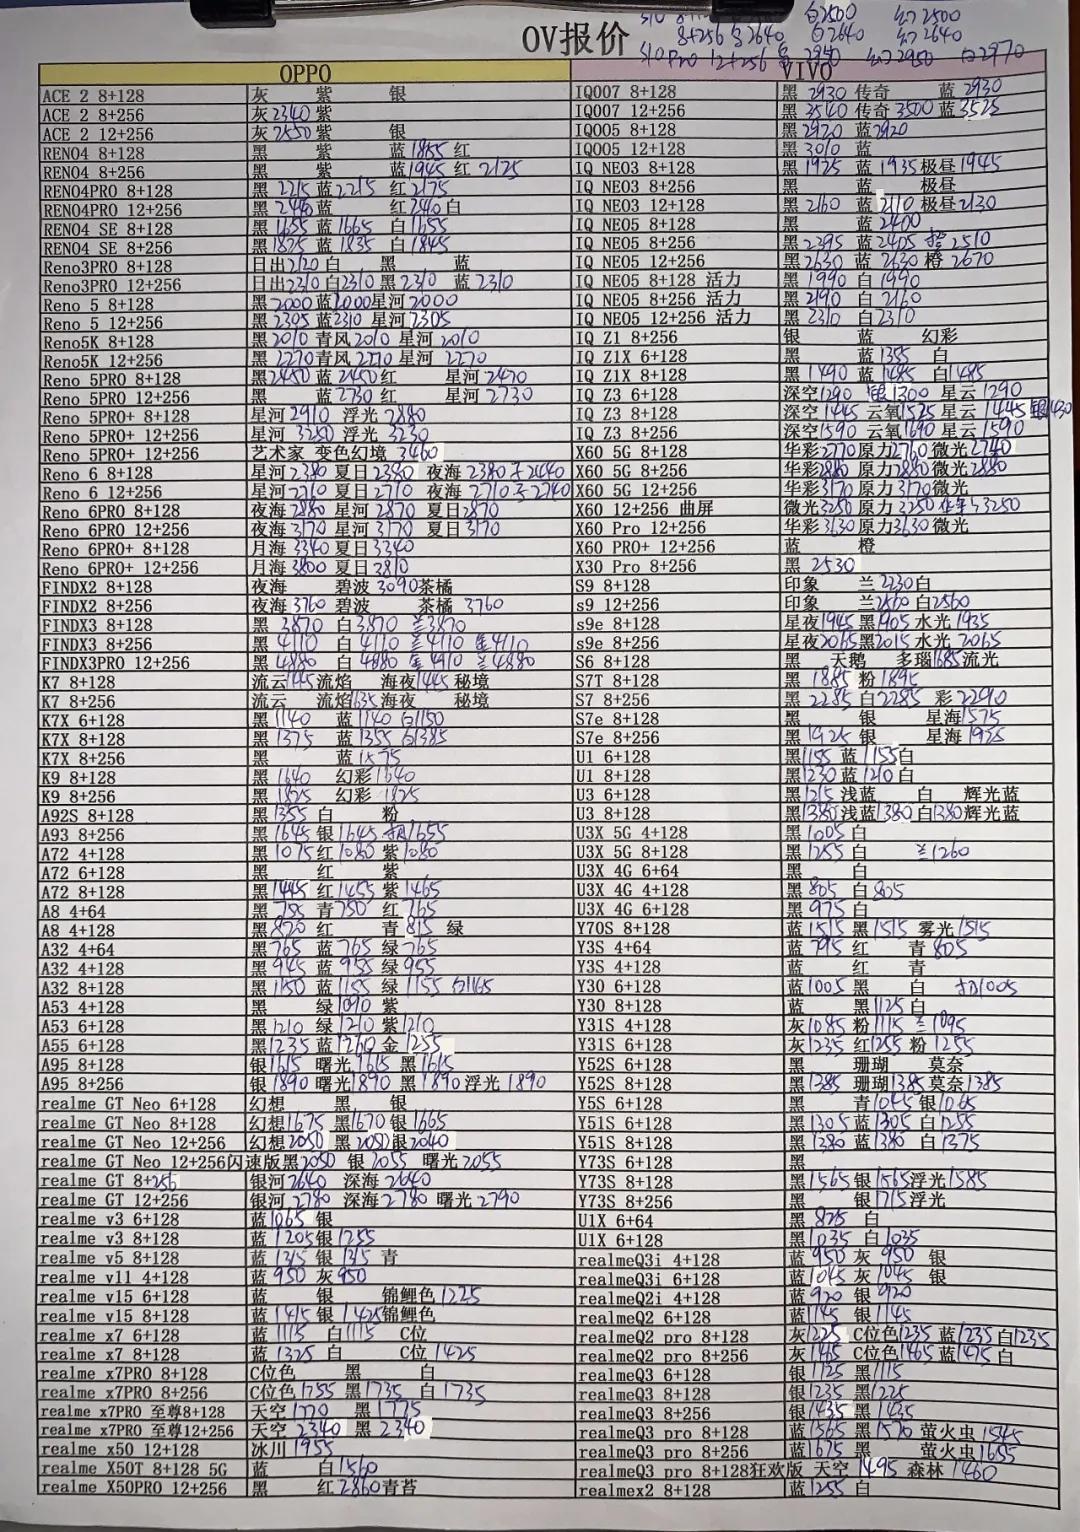 S10 8+
白2500 幻2500
8+256 白2640 幻2640
OV报价
S10pro 12+256 2950 幻2950 白2970
OPPO
ACE 2 8+128 灰 紫 银
ACE 2 8+256 灰2340 紫
ACE 2 12+256 灰2550 紫 银
RENO4 8+128 黑 紫 蓝1865 红
RENO4 8+256 黑 紫 蓝1945 红 2125
RENO4PRO 8+128 黑 2215 蓝2215 红2175
RENO4PRO 12+256 黑 2440 蓝 红2410 白
RENO4 SE 8+128 黑1655 蓝1665 白1655
RENO4 SE 8+256 黑1825 蓝1835 白1845
Reno3PRO 8+128 日出2120 白 黑 蓝
Reno3PRO 12+256 日出2310 白2310 黑2310 蓝2310
Reno 5 8+128 黑2000 蓝2000 星河2000
Reno 5 12+256 黑2305 蓝2310 星河2305
Reno5K 8+128 黑2010 青风2010 星河2010
Reno5K 12+256 黑2270 青风2270 星河 2270
Reno 5PRO 8+128 黑2450 蓝2450 红 星河2470
Reno 5PRO 12+256 黑 蓝2730 红 星河2730
Reno 5PRO+ 8+128 星河2910 浮光2880
Reno 5PRO+ 12+256 星河 3250 浮光 3230
Reno 5PRO+ 12+256 艺术家 变色幻境 3460
Reno 6 8+128 星河2380 夏日2380 夜海 2380 2440
Reno 6 12+256 星河2710 夏日2710 夜海 2710 2740
Reno 6PRO 8+128 夜海2880 星河2870 夏日2870
Reno 6PRO 12+256 夜海3170 星河3170 夏日3170
Reno 6PRO+ 8+128 月海3340 夏日3340
Reno 6PRO+ 12+256 月海3800 夏日3810
FINDX2 8+128 夜海 碧波 3090 茶橘
FINDX2 8+256 夜海3760 碧波 茶橘 3760
FINDX3 8+128 黑 3870 白3870 兰3870
FINDX3 8+256 黑 4110 白 4110 兰4110 金4110
FINDX3PRO 12+256 黑 4880 白 4880 金4910 兰4880
K7 8+128 流云1445 流焰 海夜1445 秘境
K7 8+256 流云 流焰1635 海夜 秘境
K7X 6+128 黑1140 蓝1140 白1150
K7X 8+128 黑1375 蓝1355 白1385
K7X 8+256 黑 蓝1575
K9 8+128 黑 1640 幻彩1640
K9 8+256 黑 1825 幻彩 1825
A92S 8+128 黑1355 白 粉
A93 8+256 黑1645 银1645 1655
A72 4+128 黑1075 红1080 紫1080
A72 6+128 黑 红 紫
A72 8+128 黑1445 红1455 紫1465
A8 4+64 黑755 青750 红765
A8 4+128 黑820 红 青815 绿
A32 4+64 黑765 蓝765 绿765
A32 4+128 黑945 蓝955 绿955
A32 8+128 黑1150 蓝1155 绿1155 白1165
A53 4+128 黑 绿1090 紫
A53 6+128 黑1210 绿1210 紫1210
A55 6+128 黑1235 蓝1260 金1255
A95 8+128 银1615 曙光1615 黑1615
A95 8+256 银1890 曙光1890 黑1890 浮光1890
realme GT Neo 6+128 幻想 黑 银
realme GT Neo 8+128 幻想1675 黑1670 银1665
realme GT Neo 12+256 幻想2050 黑 银2040
realme GT Neo 12+256闪速版 黑2050 银2055 曙光2055
realme GT 8+256 银河2640 深海2640
realme GT 12+256 银河2780 深海2780 曙光2790
realme v3 6+128 蓝1065 银
realme v3 8+128 蓝1205 银1255
realme v5 8+128 蓝1315 银1315 青
realme v11 4+128 蓝950 灰950
realme v15 6+128 蓝 银 锦鲤色1225
realme v15 8+128 蓝1415 银1425 锦鲤色
realme x7 6+128 蓝1115 白1115 C位
realme x7 8+128 蓝1325 白 C位1425
realme x7PRO 8+128 C位色 黑 白
realme x7PRO 8+256 C位色1755 黑1735 白1735
realme x7PRO 至尊8+128 天空1770 黑1775
realme x7PRO 至尊12+256 天空 2340 黑 2340
realme x50 12+128 冰川1955
realme X50T 8+128 5G 蓝 白1560
realme X50PRO 12+256 黑 红2860 青苔
VIVO
IQOO7 8+128 黑 2930 传奇 蓝 2930
IQOO7 12+256 黑 3540 传奇3500 蓝3525
IQOO5 8+128 黑2920 蓝2920
IQOO5 12+128 黑3010 蓝
IQ NEO3 8+128 黑1925 蓝1935 极昼1945
IQ NEO3 8+256 黑 蓝 极昼
IQ NEO3 12+128 黑2160 蓝2110 极昼2130
IQ NEO5 8+128 黑 蓝2400
IQ NEO5 8+256 黑2395 蓝2405 橙2510
IQ NEO5 12+256 黑2630 蓝2630 橙 2670
IQ NEO5 8+128 活力 黑1990 白1990
IQ NEO5 8+256 活力 黑2190 白2160
IQ NEO5 12+256 活力 黑2310 白2310
IQ Z1 8+256 银 蓝 幻彩
IQ Z1X 6+128 黑 蓝1355 白
IQ Z1X 8+128 黑1490 蓝1485 白1485
IQ Z3 6+128 深空1290 银1300 星云1290
IQ Z3 8+128 深空1445 云氧1525 星云1445 银1430
IQ Z3 8+256 深空1590 云氧1690 星云1590
X60 5G 8+128 华彩2770 原力2760 微光2740
X60 5G 8+256 华彩2880 原力2880 微光2880
X60 5G 12+256 华彩3170 原力3170 微光
X60 12+256 曲屏 微光3250 原力3250 华彩3250
X60 Pro 12+256 华彩3630 原力3630 微光
X60 PRO+ 12+256 蓝 橙
X30 Pro 8+256 黑 2530
S9 8+128 印象 兰2230 白
s9 12+256 印象 兰2560 白2560
s9e 8+128 星夜1945 黑1905 水光1935
s9e 8+256 星夜2065 黑2015 水光2065
S6 8+128 黑 天鹅 多瑙1685 流光
S7T 8+128 黑 1885 粉1895
S7 8+256 黑2285 白2285 彩2290
S7e 8+128 黑 银 星海1575
S7e 8+256 黑1925 银 星海1925
U1 6+128 黑1155 蓝1155 白
U1 8+128 黑1230 蓝1210 白
U3 6+128 黑1215 浅蓝 白 辉光蓝
U3 8+128 黑1380 浅蓝1380 白1380 辉光蓝
U3X 5G 4+128 黑1005 白
U3X 5G 8+128 黑1255 白 兰1260
U3X 4G 6+64 黑 白
U3X 4G 4+128 黑805 白805
U3X 4G 6+128 黑975 白
Y70S 8+128 蓝1515 黑1515 雾光1515
Y3S 4+64 蓝795 红 青805
Y3S 4+128 蓝 红 青
Y30 6+128 蓝1005 黑 白 1005
Y30 8+128 蓝 黑1125 白
Y31S 4+128 灰1085 粉1115 兰1095
Y31S 6+128 灰1235 红1255 粉1255
Y52S 6+128 黑 珊瑚 莫奈
Y52S 8+128 黑1385 珊瑚1385 莫奈1385
Y5S 6+128 黑 青1045 银1065
Y51S 6+128 黑1305 蓝1305 白1255
Y51S 8+128 黑1380 蓝1380 白1375
Y73S 6+128 黑
Y73S 8+128 黑1565 银1565 浮光1585
Y73S 8+256 黑 银1715 浮光
U1X 6+64 黑 825 白
U1X 6+128 黑1035 白1035
realmeQ3i 4+128 蓝950 灰950 银
realmeQ3i 6+128 蓝1045 灰1045 银
realmeQ2i 4+128 蓝920 银920
realmeQ2 6+128 蓝1145 银1145
realmeQ2 pro 8+128 灰1225 C位色1235 蓝1235 白1235
realmeQ2 pro 8+256 灰1465 C位色1465 蓝1475 白
realmeQ3 6+128 银1125 黑1115
realmeQ3 8+128 银1235 黑1225
realmeQ3 8+256 银1435 黑1435
realmeQ3 pro 8+128 蓝1565 黑1570 萤火虫1545
realmeQ3 pro 8+256 蓝1675 黑 萤火虫1655
realmeQ3 pro 8+128狂欢版 天空1495 森林1460
realmex2 8+128 蓝1255 白